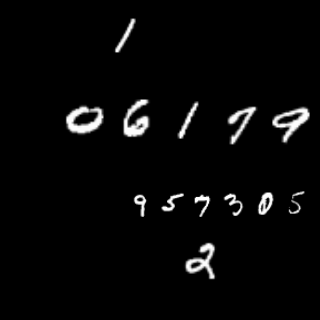 1
06179
957305
2